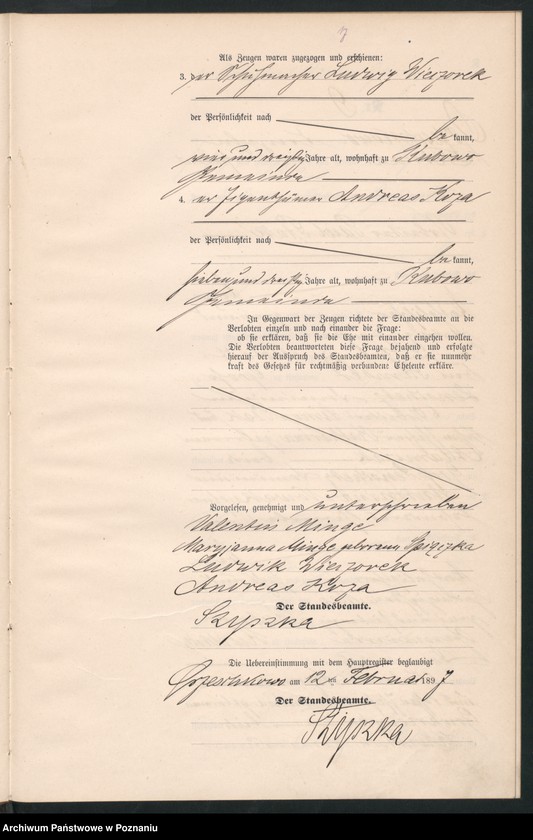 7
Als Zeugen waren zugezogen und erschienen:
3. der Schuhmacher Ludwig Wieczorek
der Persönlichkeit nach
be kannt,
vier und dreißig Jahre alt, wohnhaft zu Kubowo
Gemeinde
4. er Eigenthümer Andreas Koza
der Persönlichkeit nach
be kannt,
sieben und dreißig Jahre alt, wohnhaft zu Kubowo
Gemeinde
In Gegenwart der Zeugen richtete der Standesbeamte an die
Verlobten einzeln und nach einander die Frage:
ob sie erklären, daß sie die Ehe mit einander eingehen wollen.
Die Verlobten beantworteten diese Frage bejahend und erfolgte
hierauf der Ausspruch des Standesbeamten, daß er sie nunmehr
kraft des Gesetzes für rechtmäßig verbundene Eheleute erkläre.
Vorgelesen, genehmigt und unterschrieben
Valentin Minge
Maryjanna Minge geborene
Ludwik Wieczorek
Andreas Koza
Der Standesbeamte.
Skypzka
Die Uebereinstimmung mit dem Hauptregister beglaubigt
am 12ten Februar 1897
Der Standesbeamte.
Skypzka
Archiwum Państwowe w Poznaniu